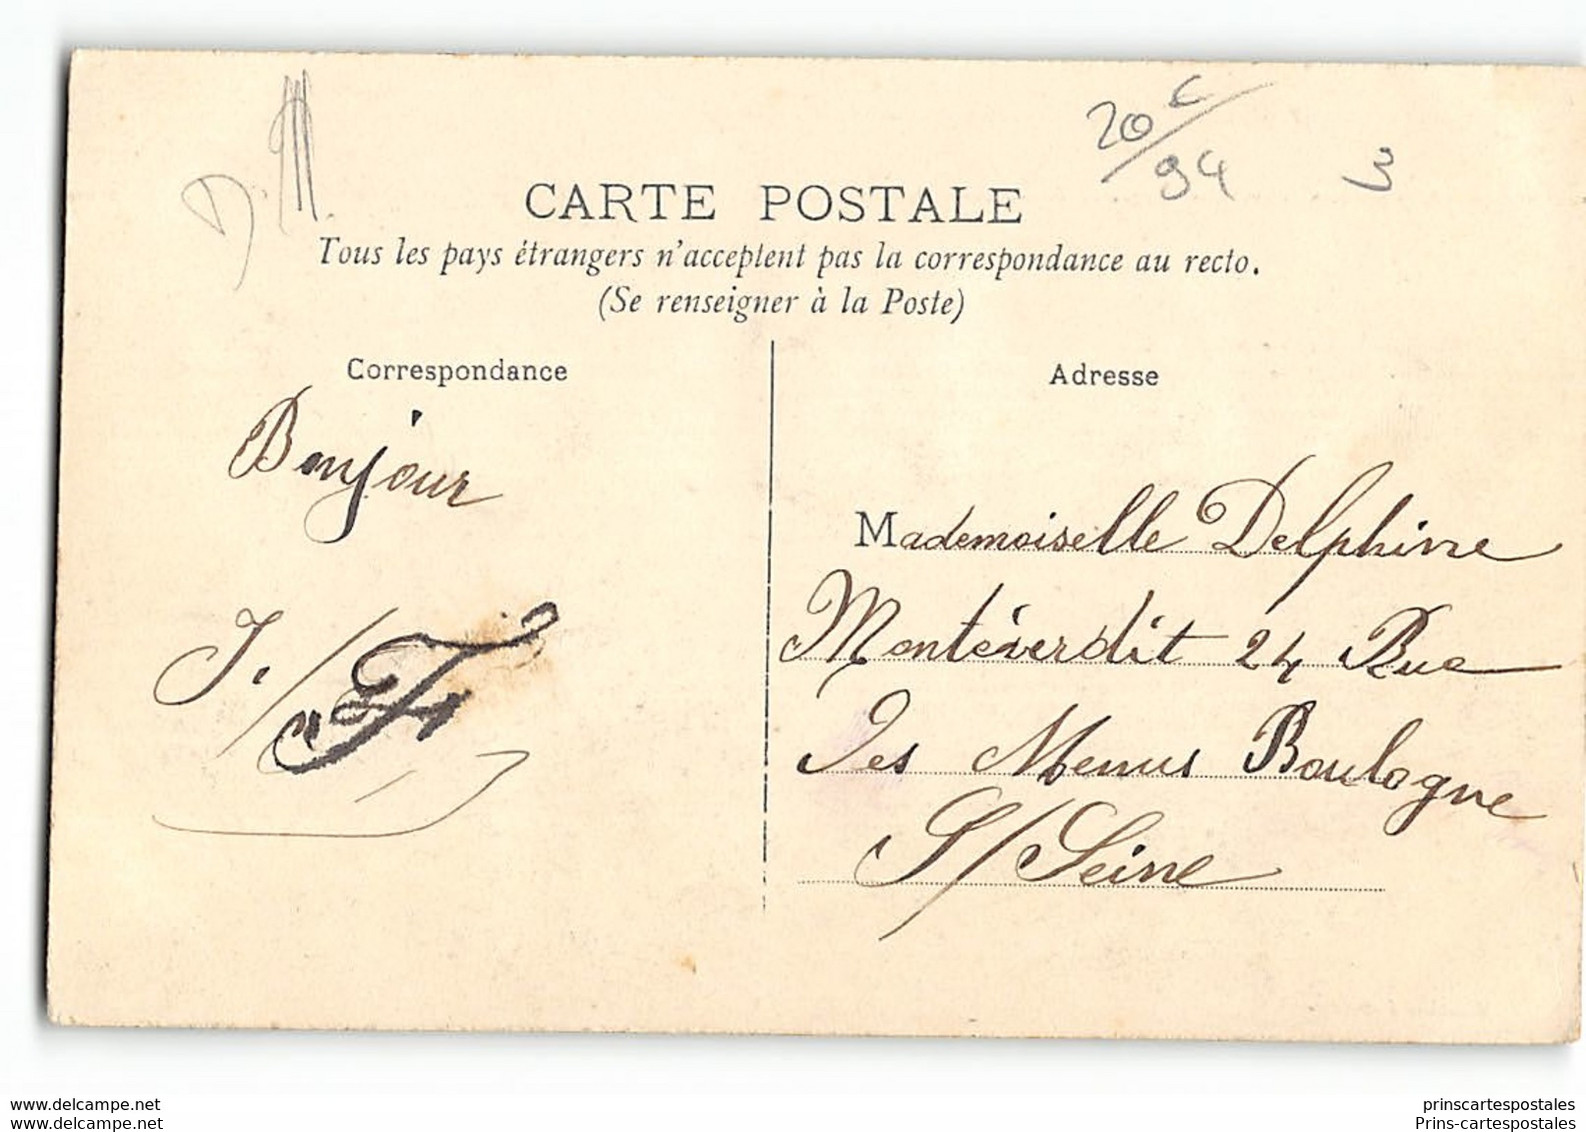 D. M.
20€/
94
3
CARTE POSTALE
Tous les pays étrangers n'acceptent pas la correspondance au recto.
(Se renseigner à la Poste)
Correspondance
Bonjour
Adresse
Mademoiselle Delphine
Montéverdit 24 Rue
Des Menus Boulogne
S/Seine
www.delcampe.net
www.delcampe.net
prinscartespostales
Prins-cartespostales